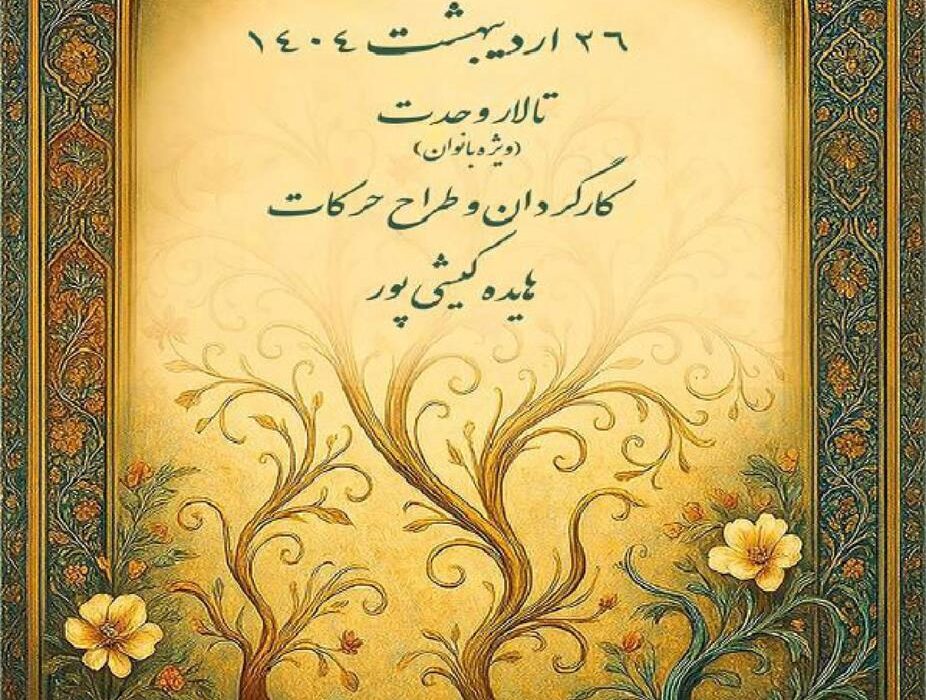 ۲۶ اردیبهشت ۱۴۰۴
تالار وحدت
(ویژه بانوان)
کارگردان و طراح حرکات
هایده کیشی پور